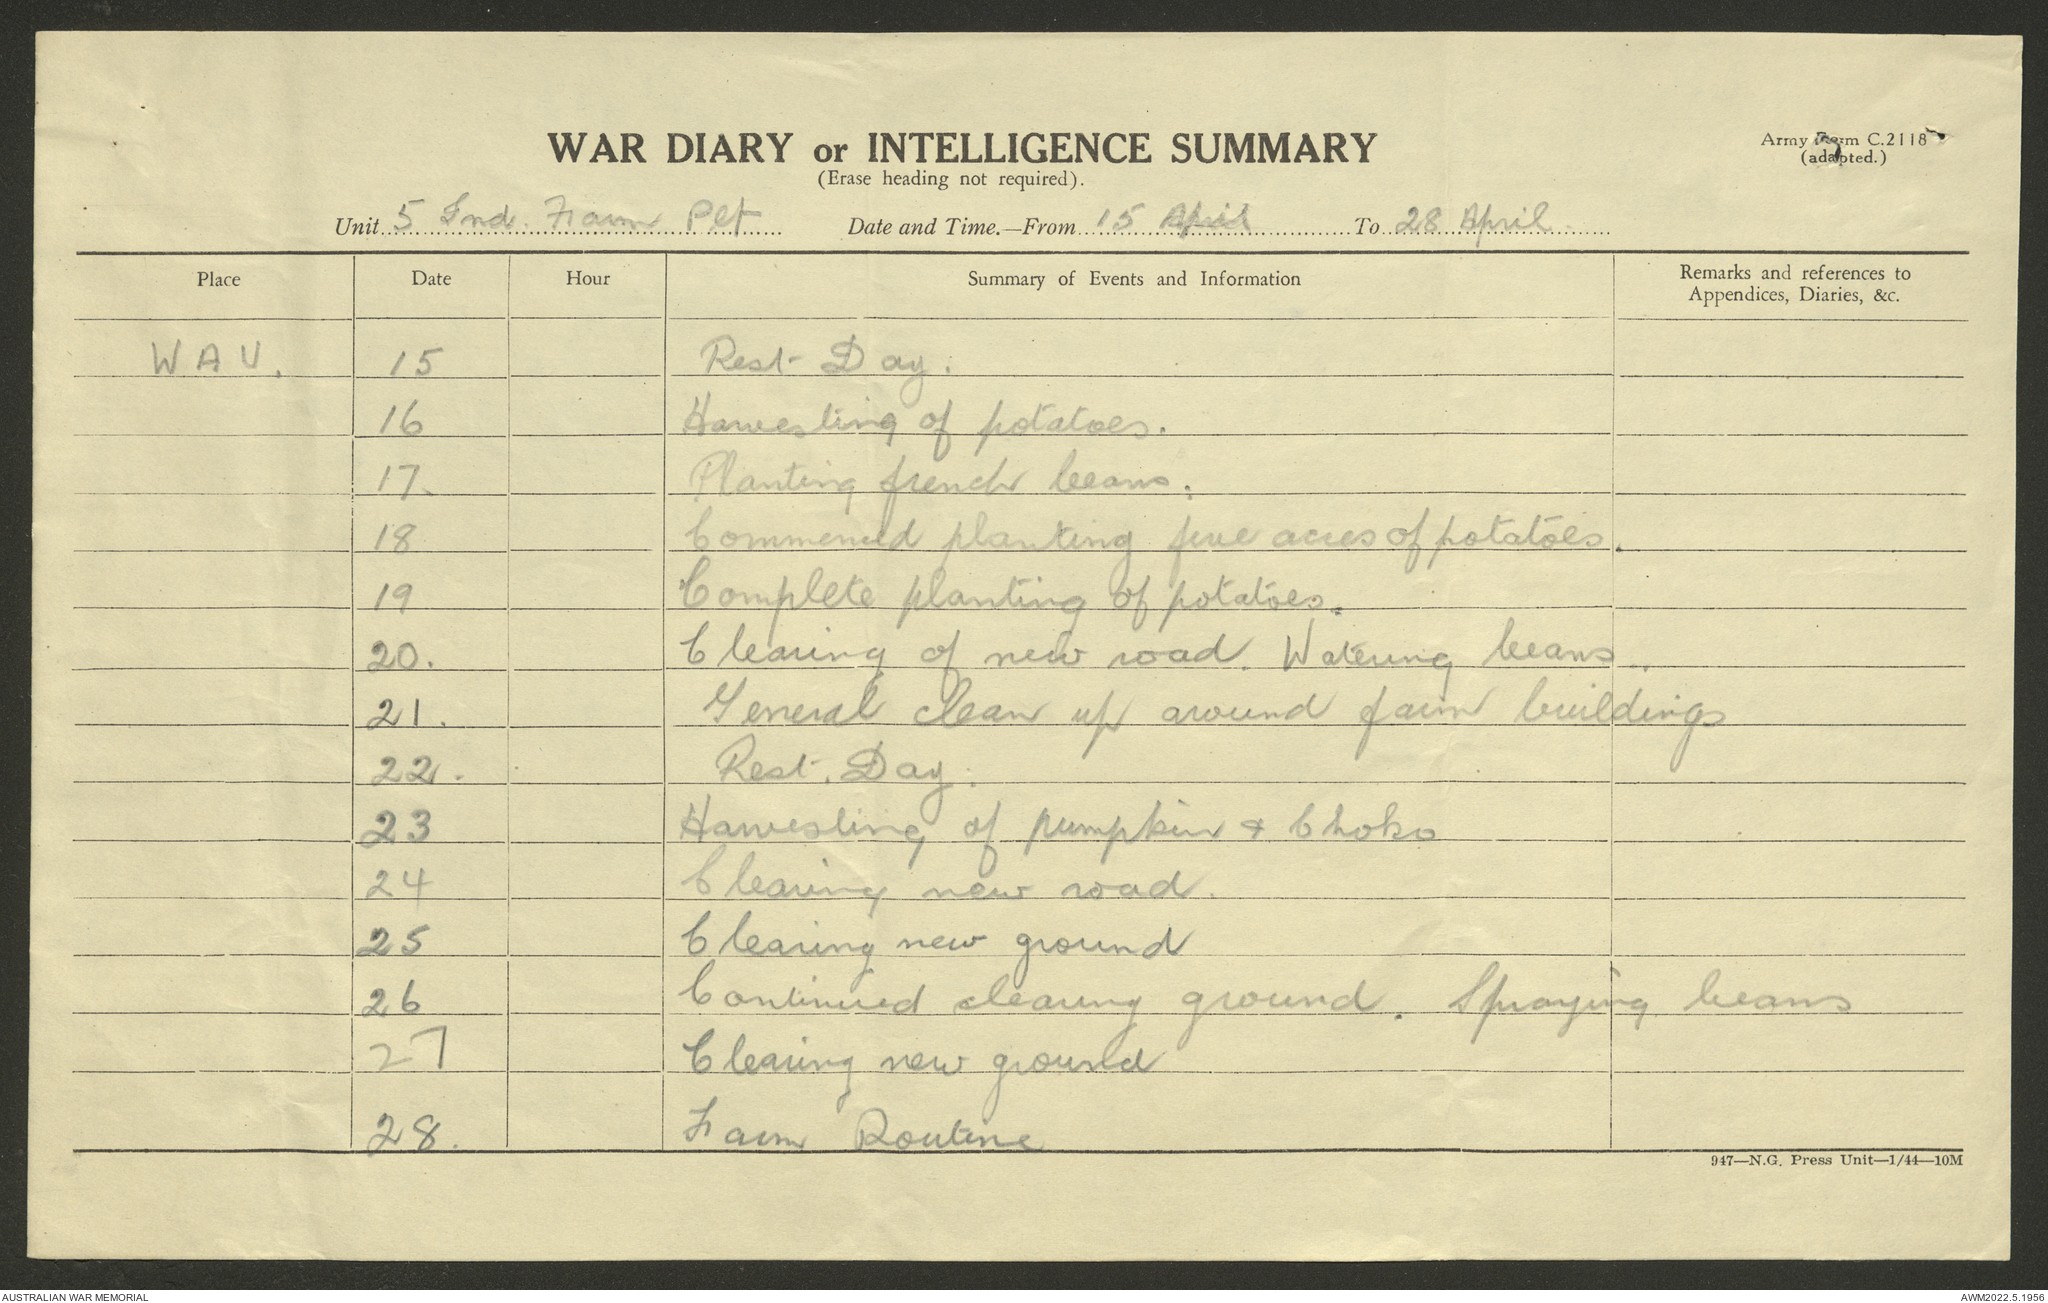 WAR DIARY or INTELLIGENCE SUMMARY
(Erase heading not required).
Army Form C.2118
(adapted.)
Unit 5 Ind. Farm Plt Date and Time.—From 15 April To 28 April.
Place Date Hour Summary of Events and Information Remarks and references to Appendices, Diaries, &c.
WAU. 15 Rest Day.
16 Harvesting of potatoes.
17. Planting french beans.
18 Commenced planting five acres of potatoes.
19 Complete planting of potatoes.
20. Clearing of new road. Watering beans.
21. General clean up around farm buildings
22. Rest Day.
23 Harvesting of pumpkin & Choko
24 Clearing new road.
25 Clearing new ground
26 Continued clearing ground. Spraying beans
27 Clearing new ground
28. Farm Routine
947—N.G. Press Unit—1/44—10M
AUSTRALIAN WAR MEMORIAL AWM2022.5.1956